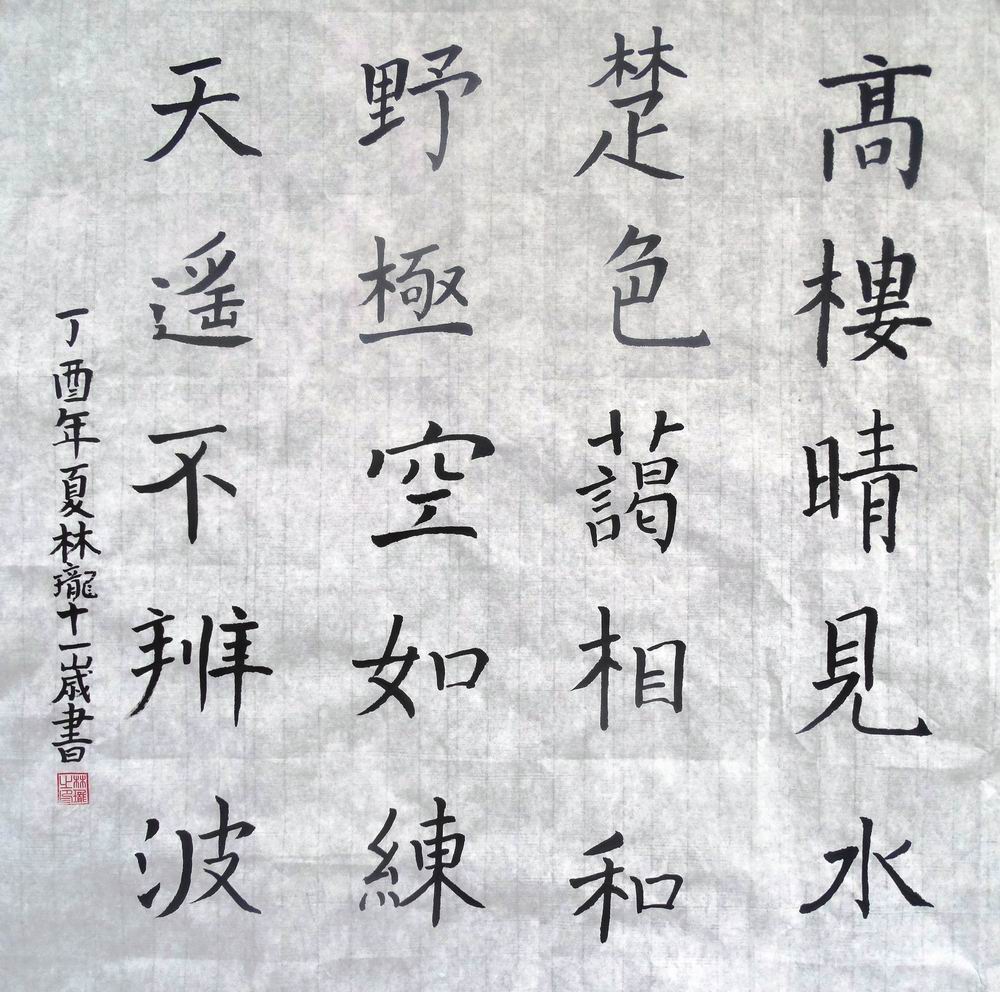 高樓晴見水
楚色藹相和
野極空如練
天遥不辨波
丁酉年夏林瓏十一歲書
林瓏之印